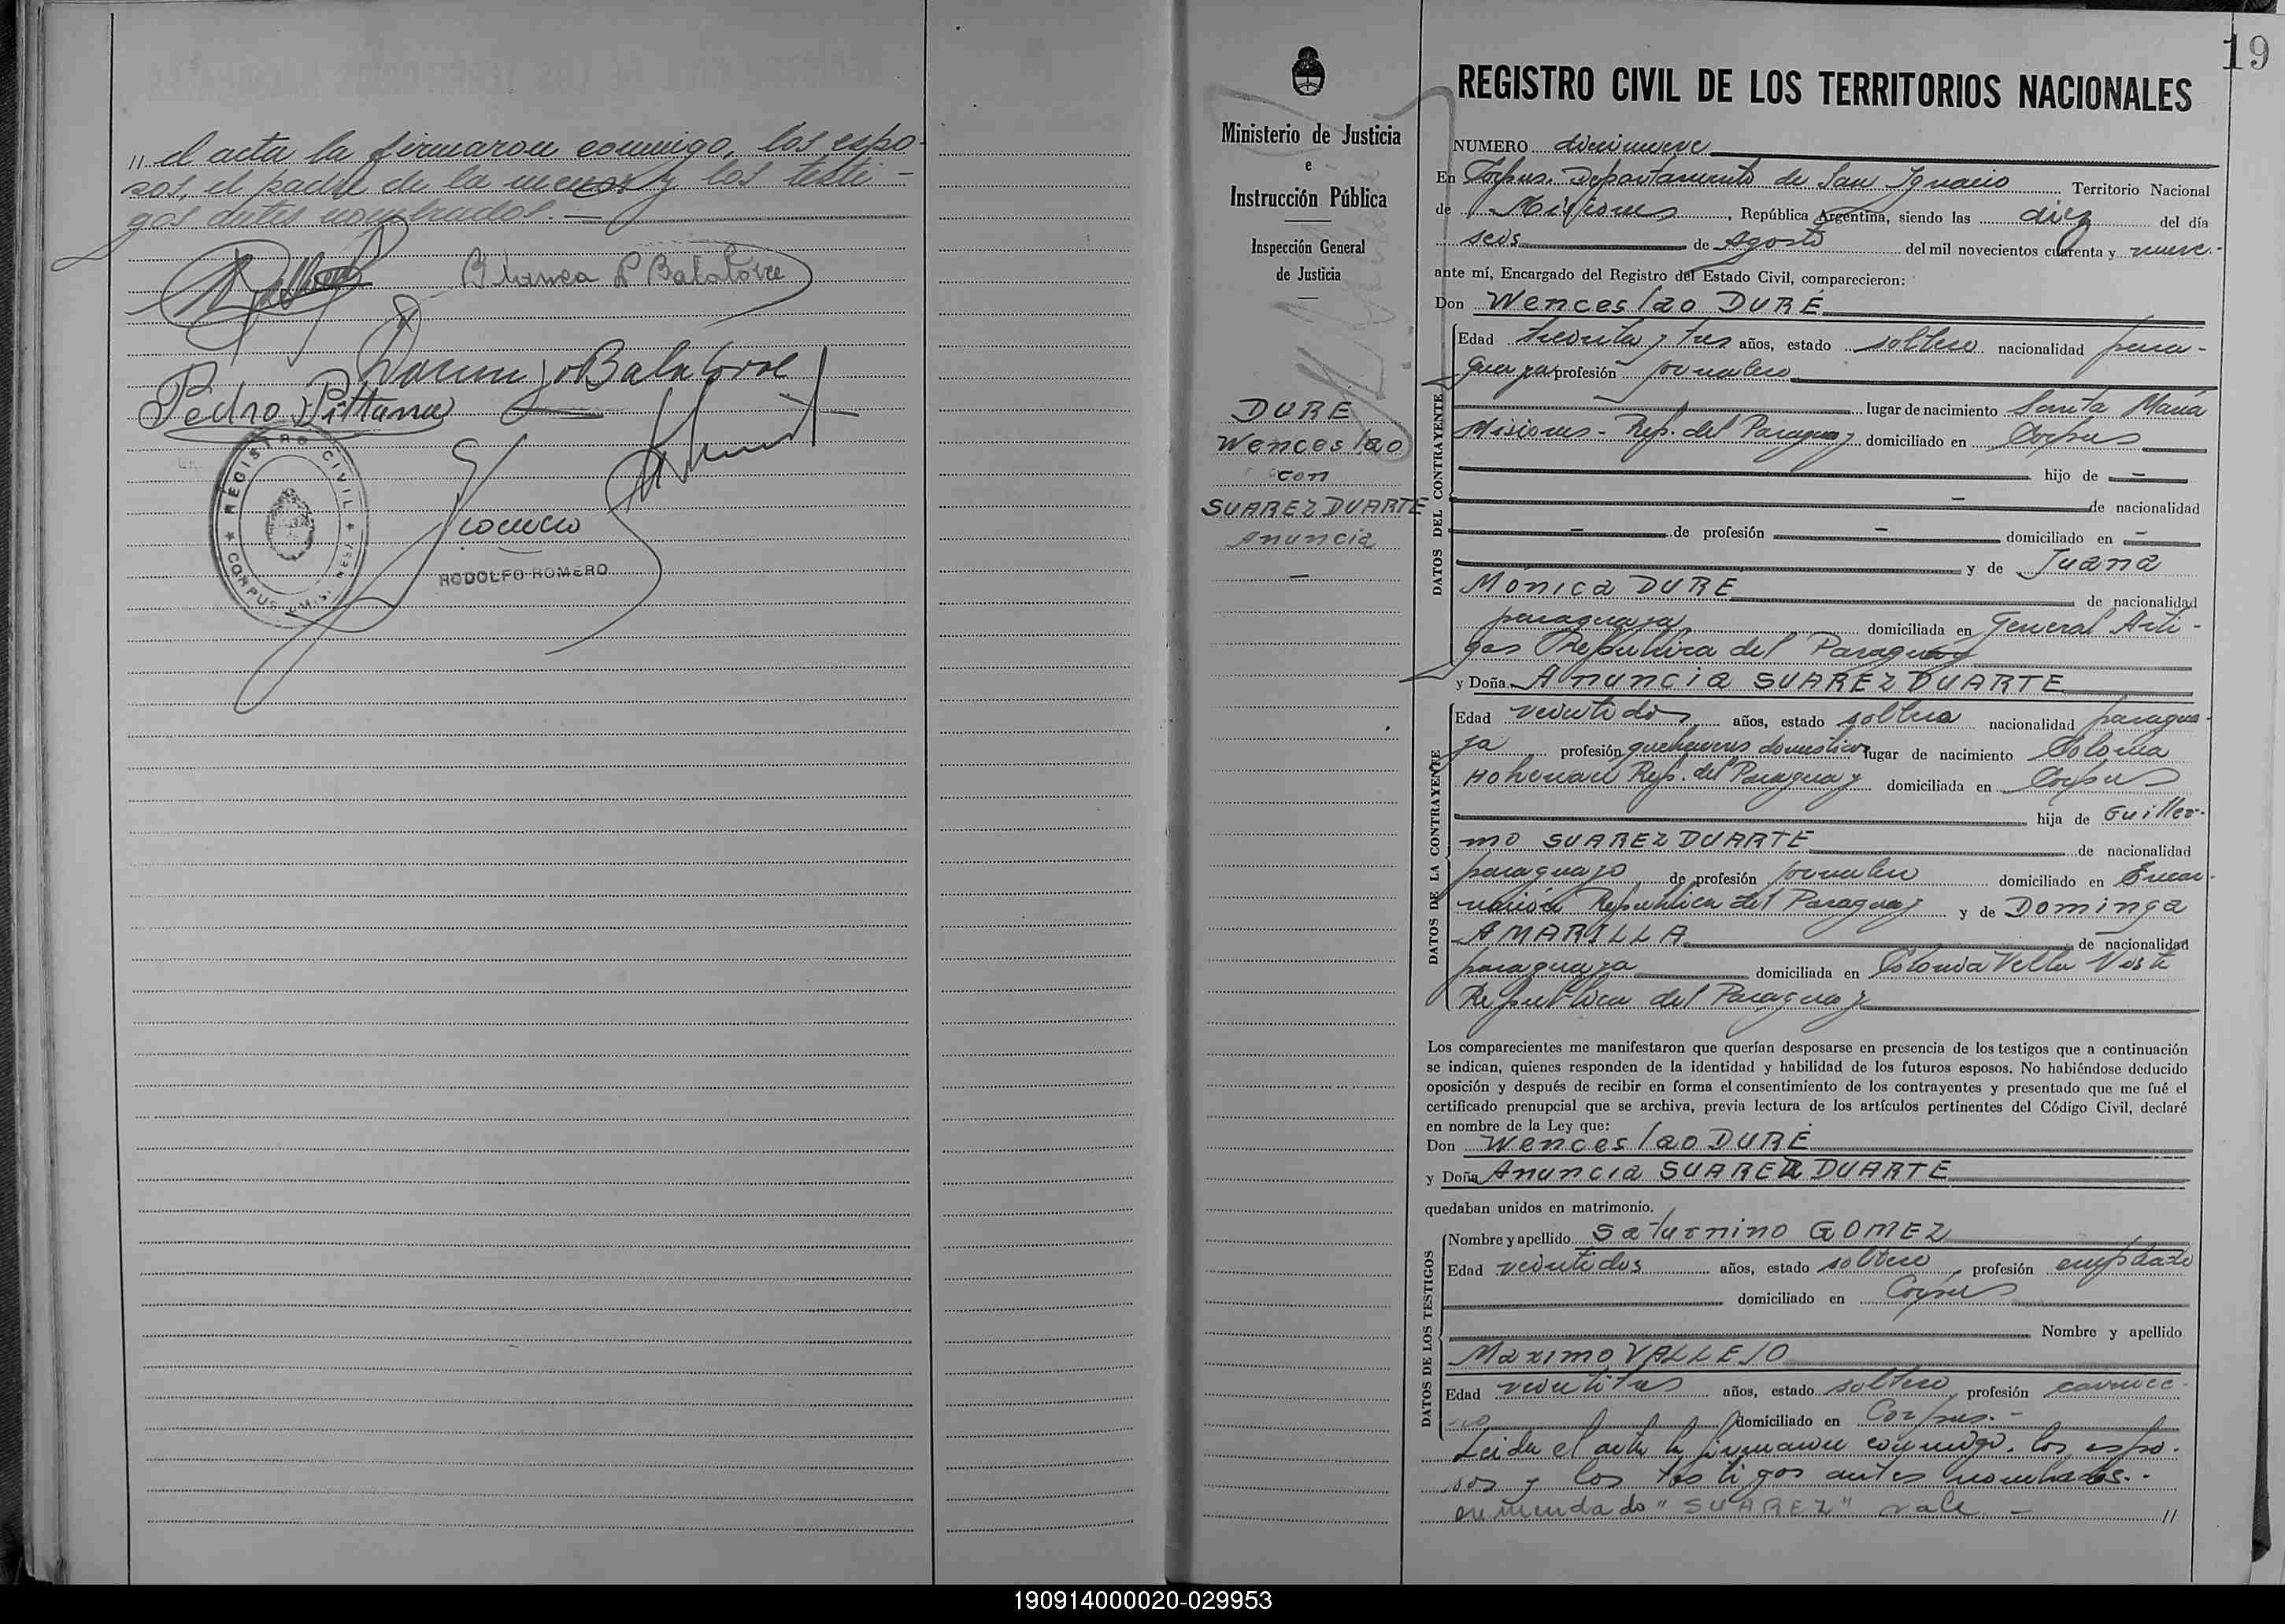 " el acta la firmaron conmigo, los espo-
sos, el padre de la menor y los testi-
gos antes nombrados. —
Blanca P Balatorre
Balatorre
Pedro Pittana
REGISTRO CIVIL
CORPUS
Romero
RODOLFO ROMERO
19
Ministerio de Justicia
e
Instrucción Pública
Inspección General
de Justicia
DURE
Wenceslao
con
SUAREZ DUARTE
Anuncia
—
REGISTRO CIVIL DE LOS TERRITORIOS NACIONALES
NUMERO diecinueve
En Corpus. Departamento de San Ignacio Territorio Nacional
de Misiones, República Argentina, siendo las diez del día
seis de Agosto del mil novecientos cuarenta y nueve.
ante mí, Encargado del Registro del Estado Civil, comparecieron:
Don Wenceslao DURÉ
DATOS DEL CONTRAYENTE
Edad treinta y tres años, estado soltero nacionalidad para-
guaya profesión jornalero
lugar de nacimiento Santa María
Misiones - Rep. del Paraguay domiciliado en Corpus
hijo de —
— de nacionalidad
— de profesión — domiciliado en —
y de Juana
Mónica DURE de nacionalidad
paraguaya domiciliada en General Arti-
gas República del Paraguay
y Doña Anuncia SUAREZ DUARTE
DATOS DE LA CONTRAYENTE
Edad veintidos años, estado soltera nacionalidad paragua-
ya profesión quehaceres domesticos lugar de nacimiento Colonia
Hohenau Rep. del Paraguay domiciliada en Corpus
hija de Guiller-
mo SUAREZ DUARTE de nacionalidad
paraguayo de profesión jornalero domiciliado en Encar-
nación República del Paraguay y de Dominga
AMARILLA de nacionalidad
paraguaya domiciliada en Colonia Vella Vista
República del Paraguay
Los comparecientes me manifestaron que querían desposarse en presencia de los testigos que a continuación
se indican, quienes responden de la identidad y habilidad de los futuros esposos. No habiéndose deducido
oposición y después de recibir en forma el consentimiento de los contrayentes y presentado que me fué el
certificado prenupcial que se archiva, previa lectura de los artículos pertinentes del Código Civil, declaré
en nombre de la Ley que:
Don Wenceslao DURÉ
y Doña Anuncia SUAREZ DUARTE
quedaban unidos en matrimonio.
DATOS DE LOS TESTIGOS
Nombre y apellido Saturnino GOMEZ
Edad veintidos años, estado soltero, profesión empleado
domiciliado en Corpus
Nombre y apellido
Maximo VALLEJO
Edad veintitres años, estado soltero, profesión carnice-
ro domiciliado en Corpus. -
Leida el acta la firmaron conmigo, los espo-
sos y los testigos antes nombrados. -
enmendado "SUAREZ" vale — "
190914000020-029953